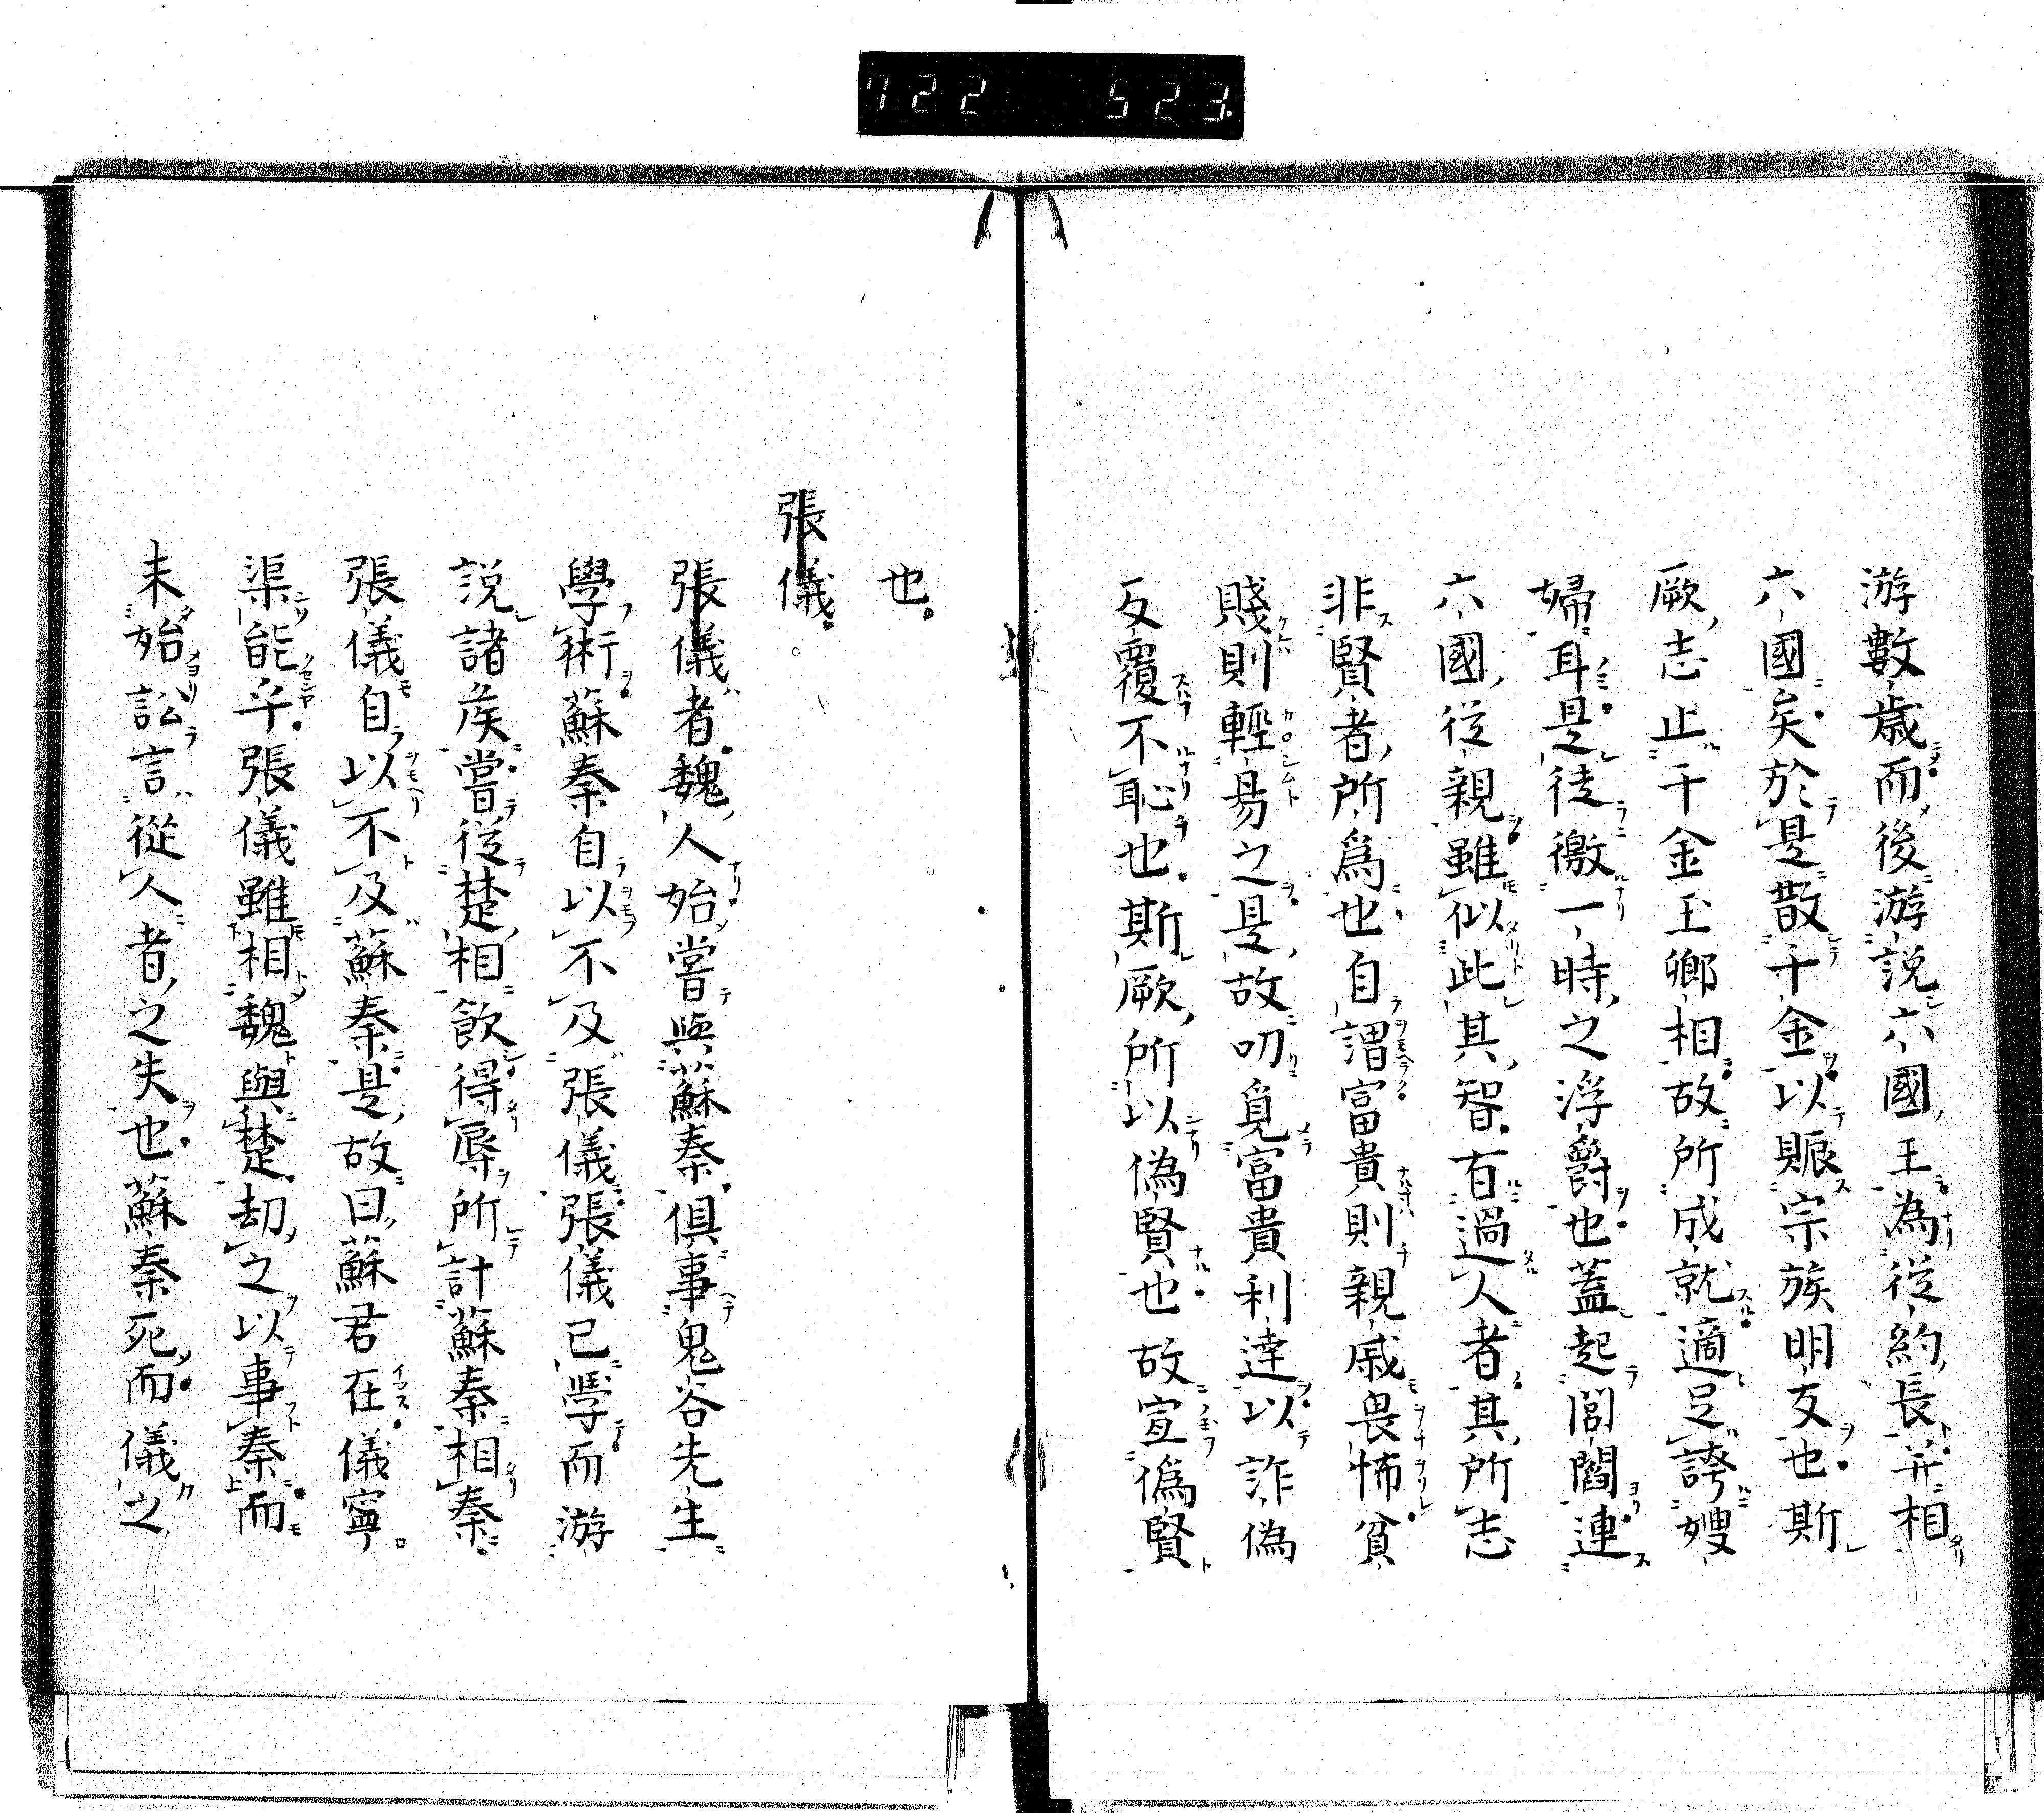 722 523
游數歳而後游説六國王為從約長并相
六國矣於是散千金以賑宗族明友也斯
厥志止千金玉卿相故所成就適足誇嫂
婦耳是徒徼一時之浮爵也蓋起閭閻連
六國從親雖似此其智有過人者其所志
非賢者所爲也自謂富貴則親戚畏怖貧
賤則輕易之是故叨覓富貴利達以詐偽
反覆不恥也斯厥所以偽賢也故宣偽賢
也
張儀
張儀者魏人始嘗與蘇秦俱事鬼谷先生
學術蘇秦自以不及張儀張儀已學而游
説諸矦嘗從楚相飲得辱所計蘇秦相秦
張儀自以不及蘇秦是故曰蘇君在儀寧
渠能乎張儀雖相魏與楚刧之以事秦而
未始訟言從人者之失也蘇秦死而儀之